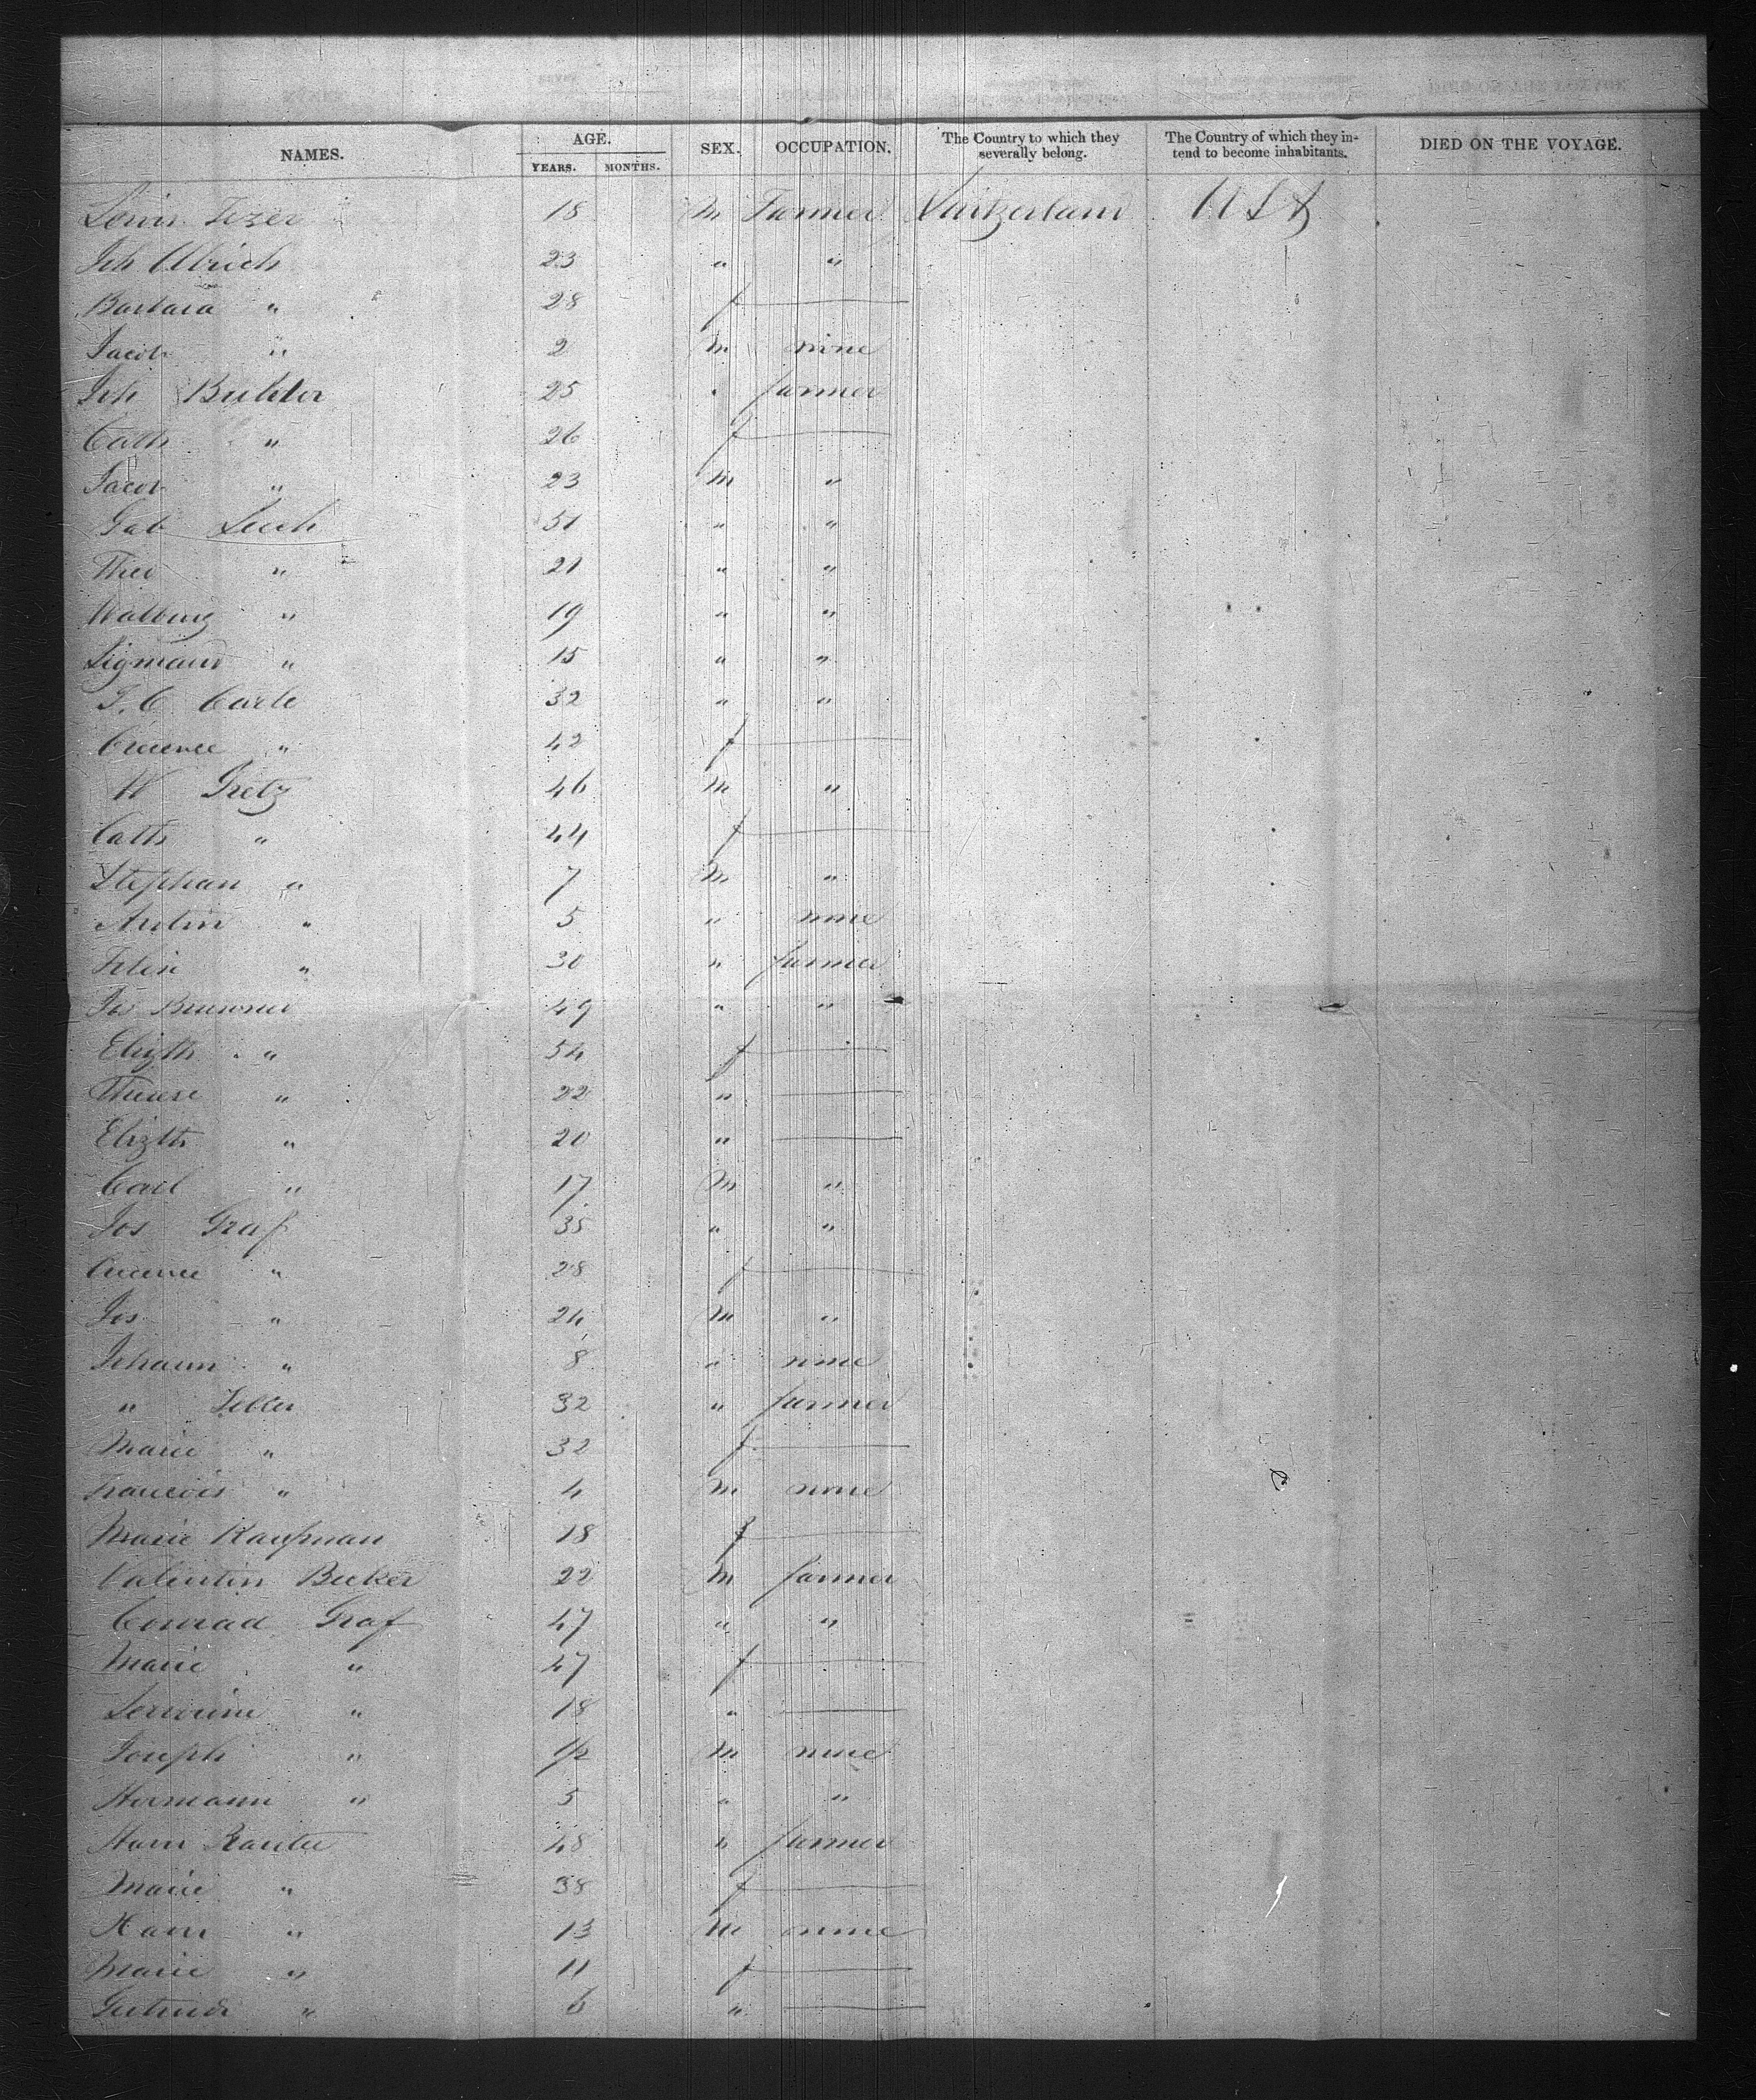 NAMES. AGE. YEARS. MONTHS. SEX. OCCUPATION. The Country to which they severally belong. The Country of which they intend to become inhabitants. DIED ON THE VOYAGE.
Louis 18 M Farmer Switzerland U S A
Joh Ulrich 23 " "
Barbara " 28 f —
Jacob " 2 M none
Joh Buhler 25 " farmer
Cath " 26 f —
Jacob " 23 M "
Gab 51 " "
Theo " 21 " "
Walburg " 19 " "
Sigmund " 15 " "
J. C. Carle 32 " "
Crecence " 42 f —
W Gretz 46 M "
Cath " 44 f —
Stephan " 7 M "
" 5 " none
" 30 " farmer
Jos Brunner 49 " "
Elizth " 54 f —
Therese " 22 " —
Elizth " 20 " —
Carl " 17 M "
Jos Graf 35 " "
Crecence " 28 f —
Jos " 24 M "
Johann " 8 " none
" Zeller 32 " farmer
Marie " 32 f —
Francois " 4 M none
Marie Kaufman 18 f —
Valentin Becker 22 M farmer
Conrad Graf 47 " "
Marie " 47 f —
" 18 " —
Joseph " M none
Hermann " 5 " "
48 " farmer
Marie " 38 f —
" 13 M none
Marie " 11 f —
Gertrude " 6 " —